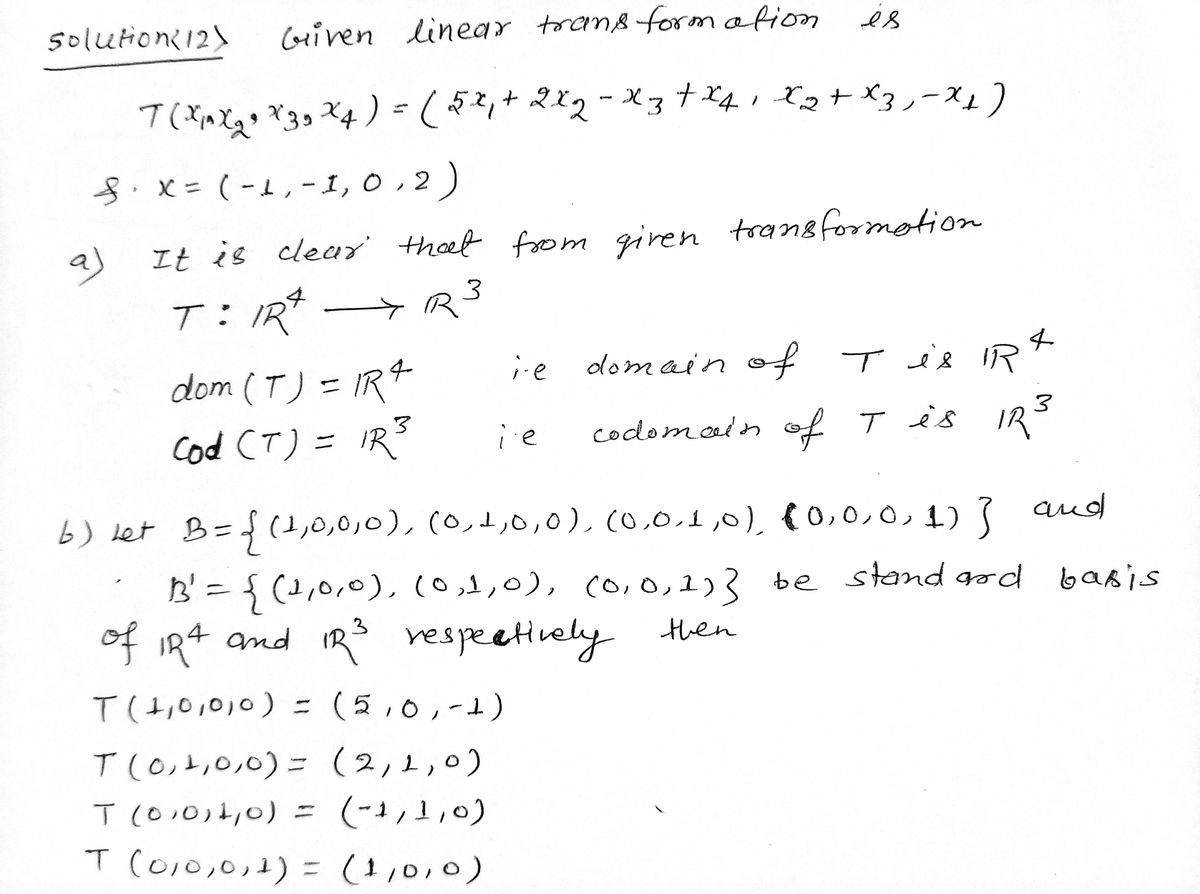 solution<12> Given linear transformation is
T(x₁,x₂,x₃,x₄) = (5x₁+2x₂-x₃+x₄, x₂+x₃,-x₁)
&. x = (-1,-1,0,2)
a) It is clear that from given transformation
T : ℝ⁴ ⟶ ℝ³
dom(T) = ℝ⁴ i.e domain of T is ℝ⁴
Cod (T) = ℝ³ i.e codomain of T is ℝ³
b) Let B = {(1,0,0,0), (0,1,0,0), (0,0,1,0), (0,0,0,1)} and
B' = {(1,0,0), (0,1,0), (0,0,1)} be standard basis
of ℝ⁴ and ℝ³ respectively then
T(1,0,0,0) = (5,0,-1)
T(0,1,0,0) = (2,1,0)
T(0,0,1,0) = (-1,1,0)
T(0,0,0,1) = (1,0,0)